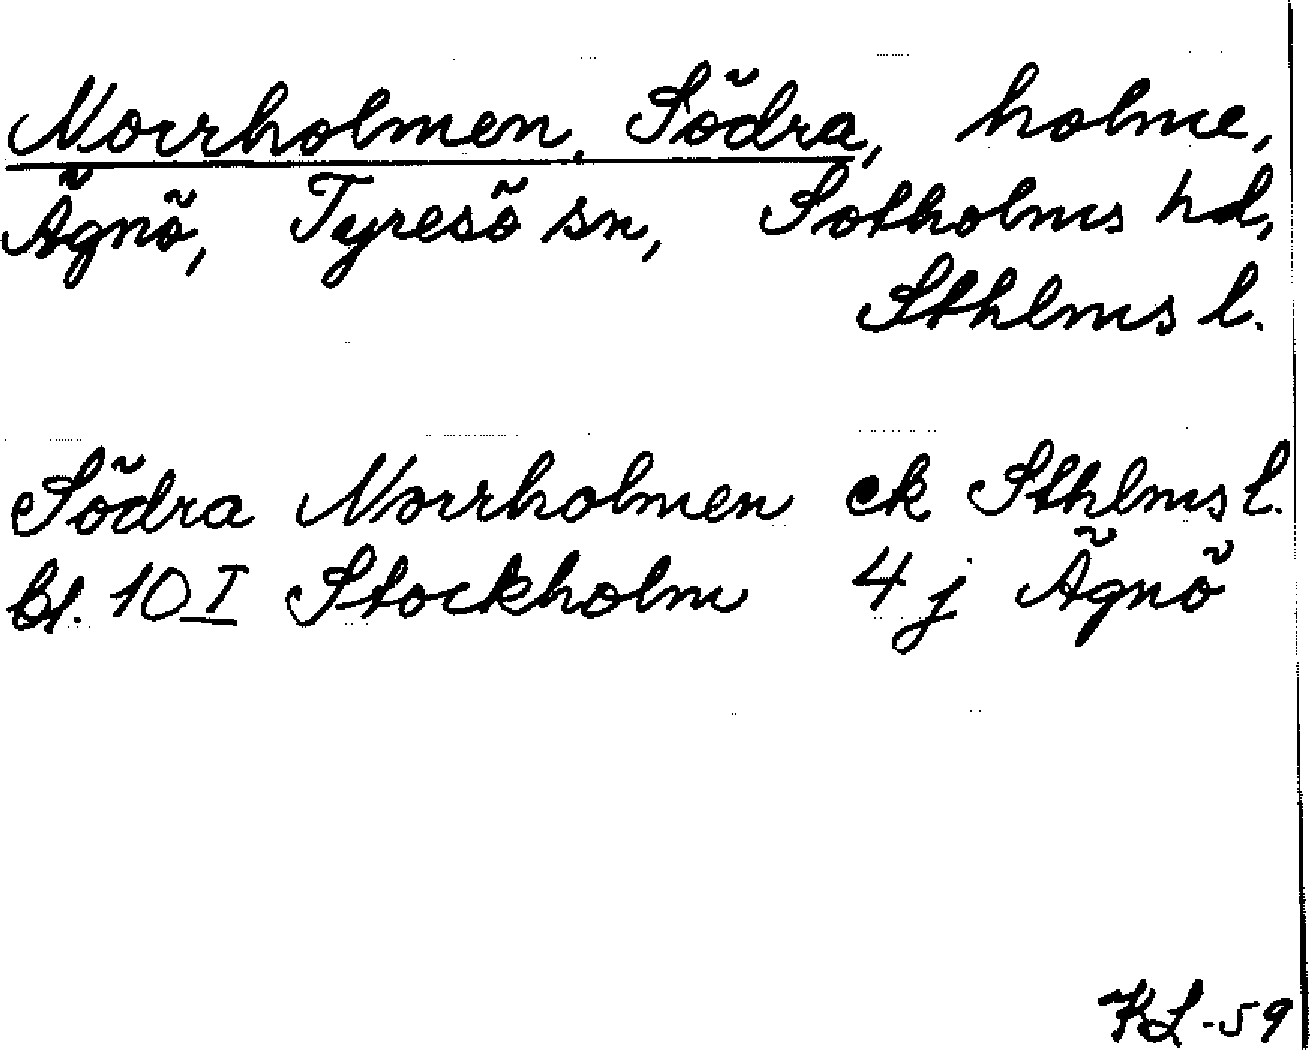 Norrholmen, Södra, holme,
Ägnö, Tyresö sn, Sotholms hd,
Sthlms l.
Södra Norrholmen ek Sthlms l.
bl. 10 I Stockholm 4 j Ägnö
KL -59